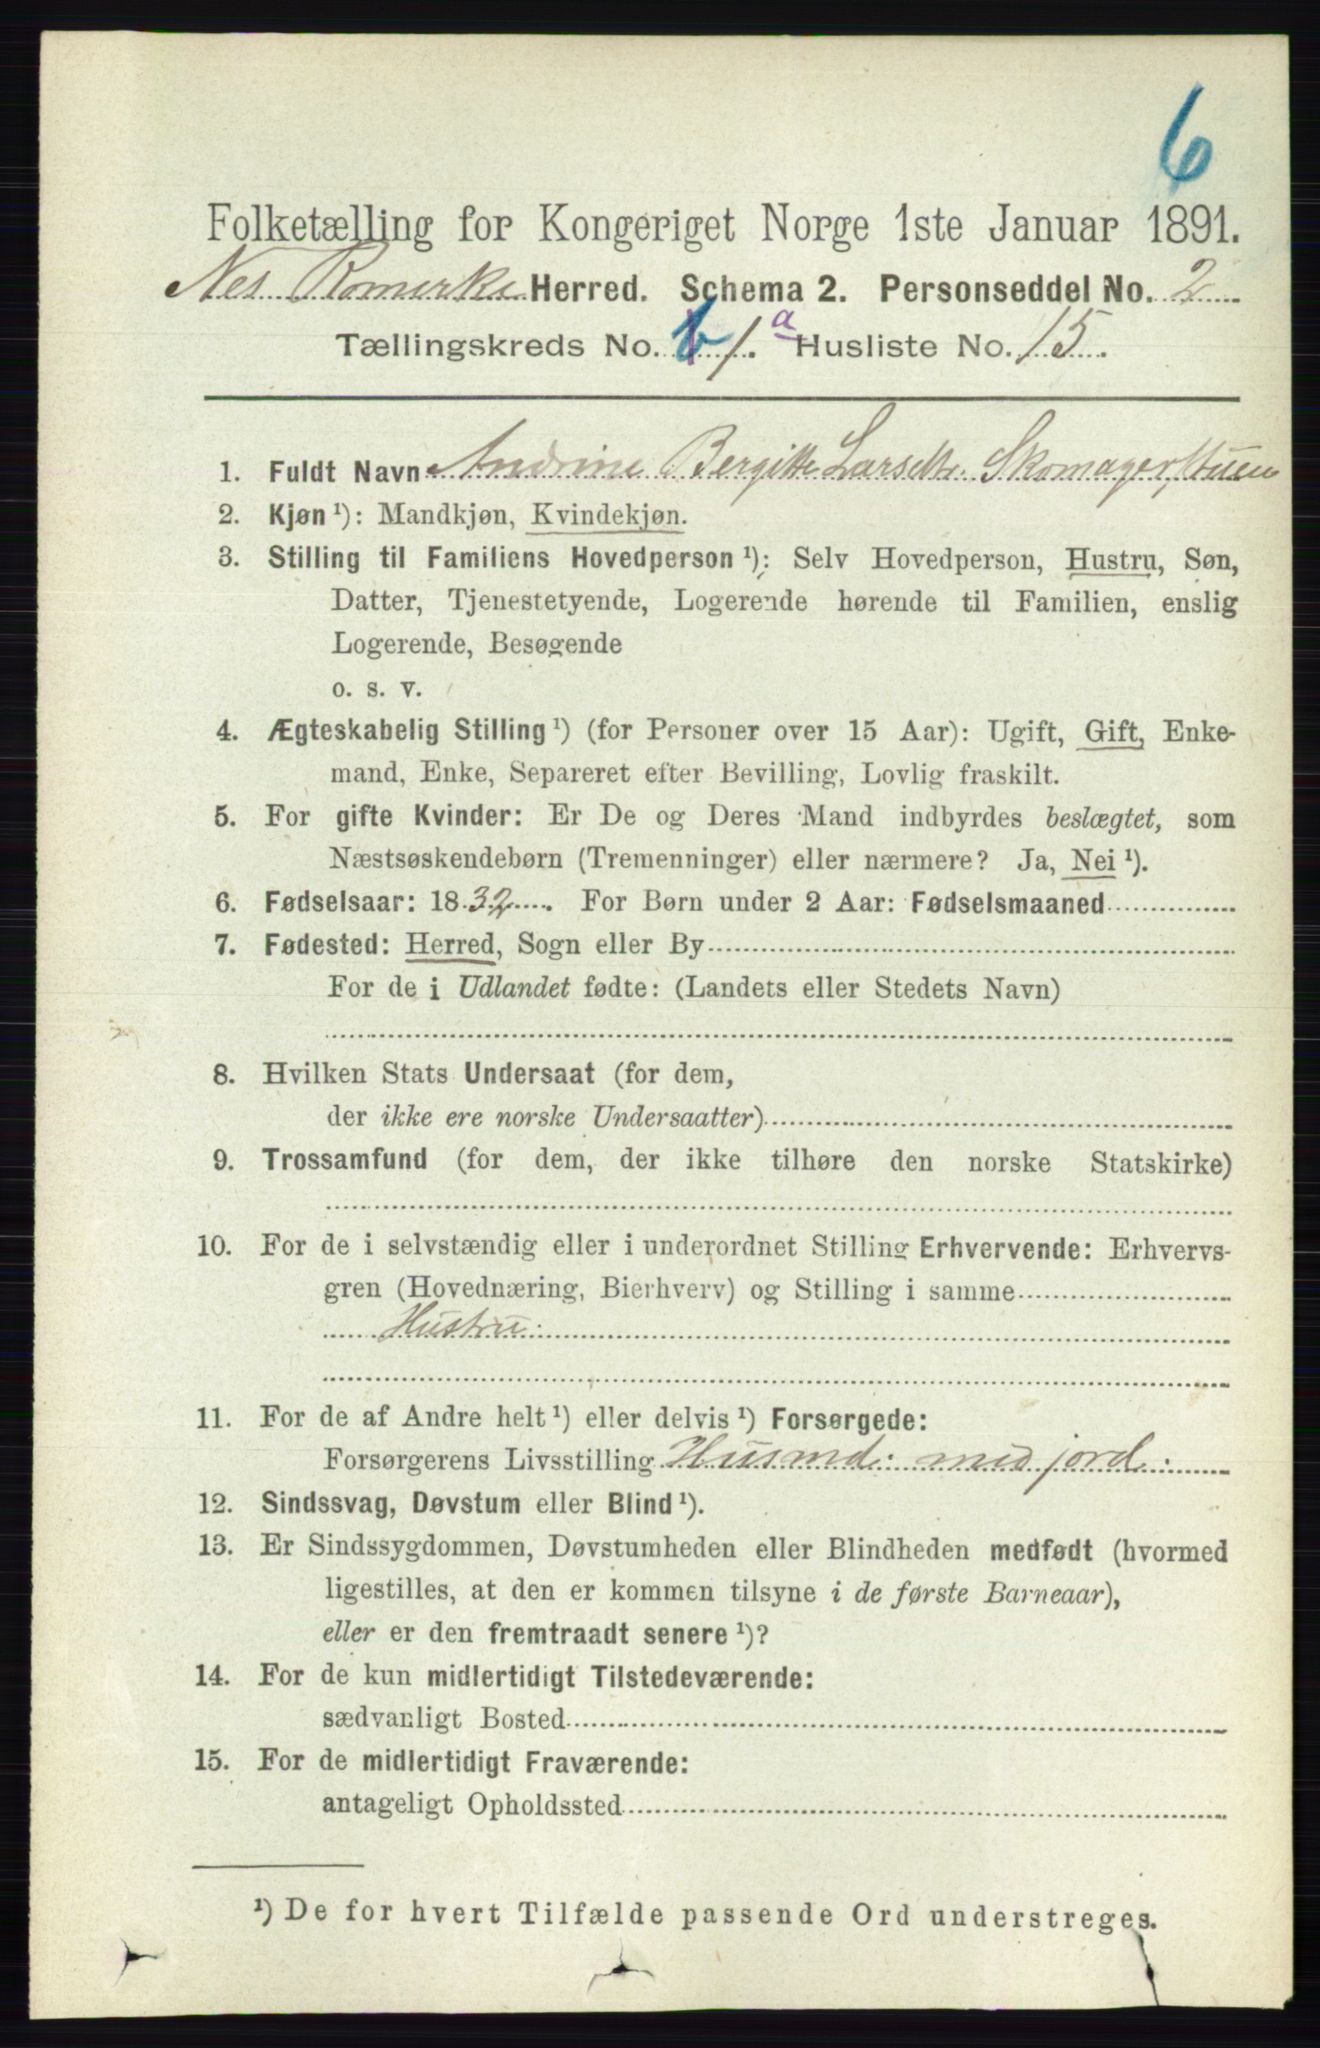 6
Folketælling for Kongeriget Norge 1ste Januar 1891.
Nes Romerike Herred. Schema 2. Personseddel No. 2
Tællingskreds No. 6 1. a Husliste No. 15.
1. Fuldt Navn Andrine Bergitte Larsdtr. Skomagerstuen
2. Kjøn ¹): Mandkjøn, Kvindekjøn.
3. Stilling til Familiens Hovedperson ¹): Selv Hovedperson, Hustru, Søn,
Datter, Tjenestetyende, Logerende hørende til Familien, enslig
Logerende, Besøgende
o. s. v.
4. Ægteskabelig Stilling ¹) (for Personer over 15 Aar): Ugift, Gift, Enke-
mand, Enke, Separeret efter Bevilling, Lovlig fraskilt.
5. For gifte Kvinder: Er De og Deres Mand indbyrdes beslægtet, som
Næstsøskendebørn (Tremenninger) eller nærmere? Ja, Nei ¹).
6. Fødselsaar: 1832. For Børn under 2 Aar: Fødselsmaaned
7. Fødested: Herred, Sogn eller By
For de i Udlandet fødte: (Landets eller Stedets Navn)
8. Hvilken Stats Undersaat (for dem,
der ikke ere norske Undersaatter)
9. Trossamfund (for dem, der ikke tilhøre den norske Statskirke)
10. For de i selvstændig eller i underordnet Stilling Erhvervende: Erhvervs-
gren (Hovednæring, Bierhverv) og Stilling i samme
Hustru.
11. For de af Andre helt ¹) eller delvis ¹) Forsørgede:
Forsørgerens Livsstilling Husmd. med jord.
12. Sindssvag, Døvstum eller Blind ¹).
13. Er Sindssygdommen, Døvstumheden eller Blindheden medfødt (hvormed
ligestilles, at den er kommen tilsyne i de første Barneaar),
eller er den fremtraadt senere ¹)?
14. For de kun midlertidigt Tilstedeværende:
sædvanligt Bosted
15. For de midlertidigt Fraværende:
antageligt Opholdssted
¹) De for hvert Tilfælde passende Ord understreges.